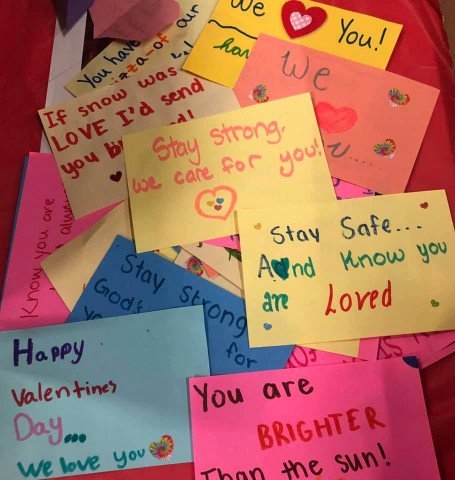 We
You!
You have
of our
We
If snow was
LOVE I'd send
you
Stay strong,
we care for you!
Stay Safe...
And Know you
are Loved
Know you are
Stay Strong
God's
for
Happy
Valentines
Day...
We love you
You are
BRIGHTER
Than the sun!